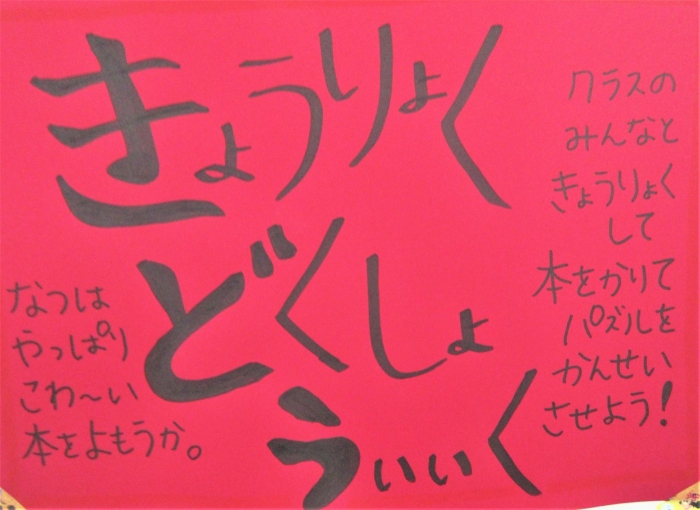 きょうりょく
どくしょ
うぃぃく
クラスの
みんなと
きょうりょく
して
本をかりて
パズルを
かんせい
させよう!
なつは
やっぱり
こわ〜い
本をよもうか。